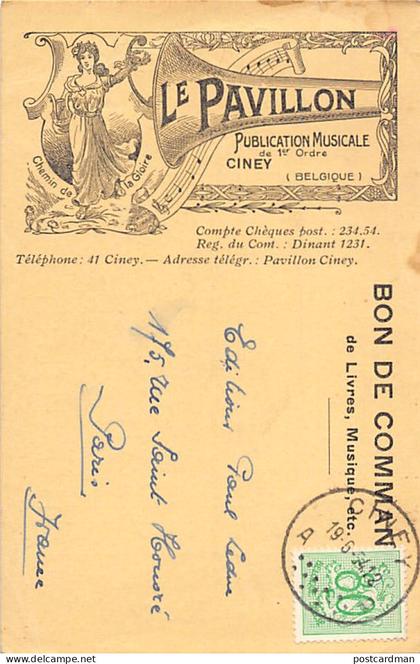 LE PAVILLON
PUBLICATION MUSICALE
de 1er Ordre
CINEY
(BELGIQUE)
Chemin de
la Gloire
Compte Chèques post. : 234.54.
Reg. du Com. : Dinant 1231.
Téléphone: 41 Ciney. — Adresse télégr. : Pavillon Ciney.
BON DE COMMAN
de Livres, Musique, etc.
Editions Paul Leduc
175, rue Saint Honoré
Paris
France
CINEY
A
postcardman.com